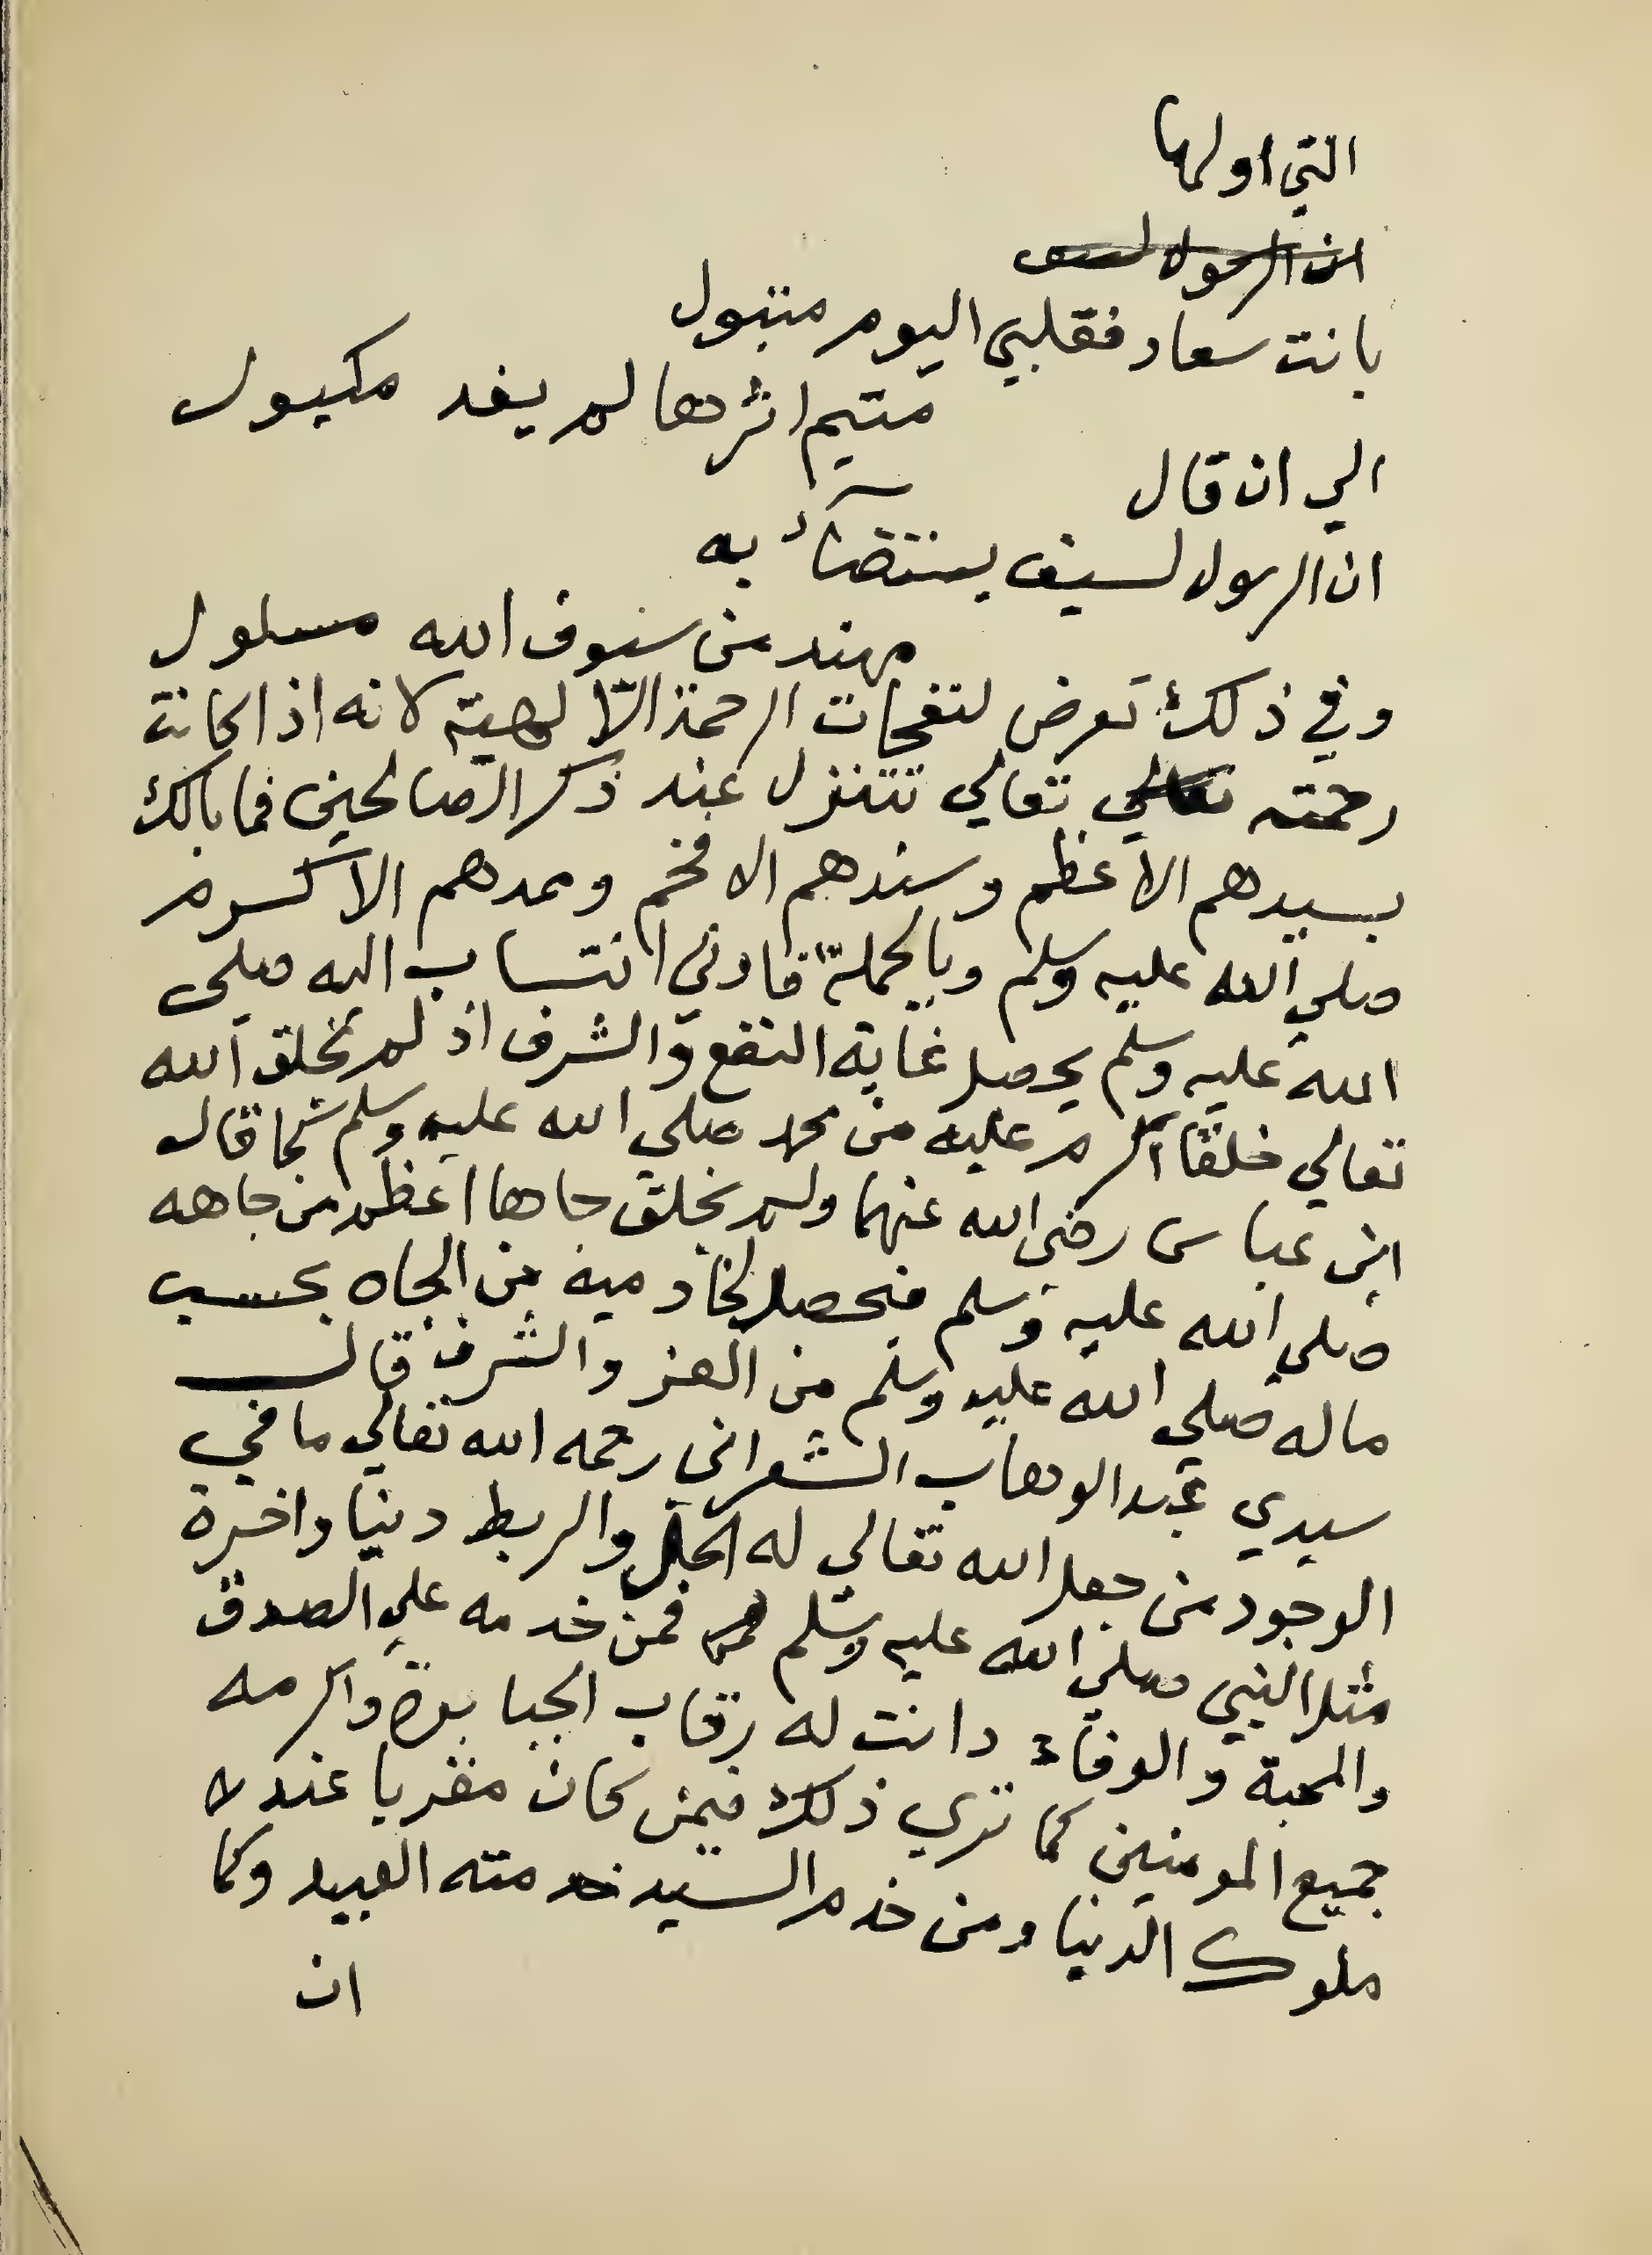 التي اولها
ان الرسول لسيف
بانت سعاد فقلبي اليوم متبول
متيم اثرها لم يفد مكبول
الي ان قال
ان الرسول لسيف يستضآء به
مهند من سيوف الله مسلول
وفي ذلك تعرض لنفحات الرحمة الالهية لانه اذا كانت
رحمته تعالي تعالي تتنزل عند ذكر الصالحين فما بالك
بسيدهم الاعظم وسندهم الافخم وممدهم الاكرم
صلي الله عليه وسلم وبالجملة فادني انتساب اليه صلي
الله عليه وسلم يحصل غاية النفع والشرف اذ لم يخلق الله
تعالي خلقا اكرم عليه من محمد صلي الله عليه وسلم كما قال
ابن عباس رضي الله عنهما ولم يخلق جاها اعظم من جاهه
صلي الله عليه وسلم فيحصل لخادميه من الجاه بحسب
ماله صلي الله عليه وسلم من العز والشرف قال
سيدي عبد الوهاب الشعراني رحمه الله تعالي ما في
الوجود من جعل الله تعالي له الحل والربط دنيا واخرة
مثل النبي صلي الله عليه وسلم فمن خدمه علي الصدق
والمحبة والوفاء دانت له رقاب الجبابرة واكرمه
جميع المومنين كما تري ذلك فيمن كان مقربا عند
ملوك الدنيا ومن خدم السيد خدمته العبيد وكما
ان